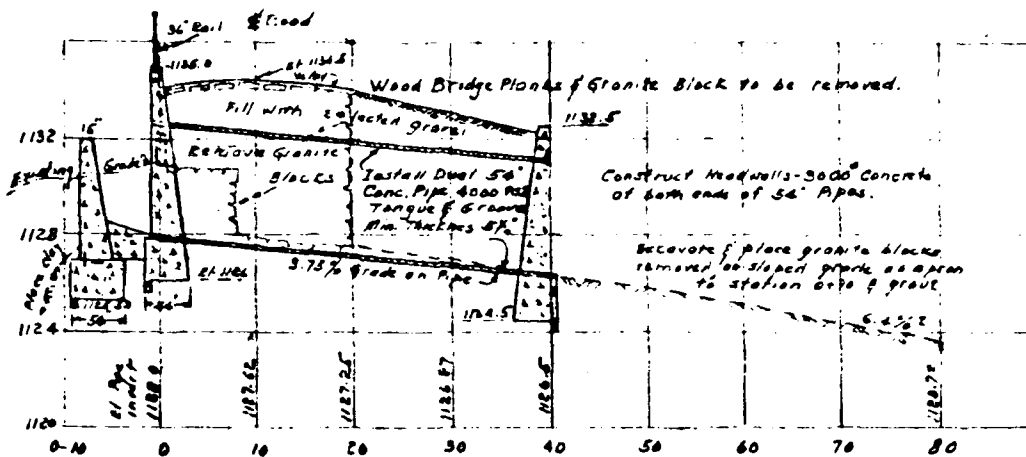 36" Rail
℄ Road
1135.0
El. 1134.5
Wood Bridge Planks & Granite Block to be removed.
Fill with
selected gravel
1132.5
1132
15"
Existing
Grade
Retrieve Granite
Blocks
Install Dual 54"
Conc. Pipe 4000 PSI
Tongue & Groove
Min. Thickness 5½"
Construct Headwalls-3000# Concrete
at both ends of 54" Pipes.
1128
Excavate & place granite blocks
removed on sloped grade as apron
to station 0+70 & grout
3.75% Grade on Pipe
El. 1126
1124.5
54"
1124
El Pipe
Invert
1128.0
1127.62
1127.25
1126.87
1126.5
1123.72
1120
0-10
0
10
20
30
40
50
60
70
80